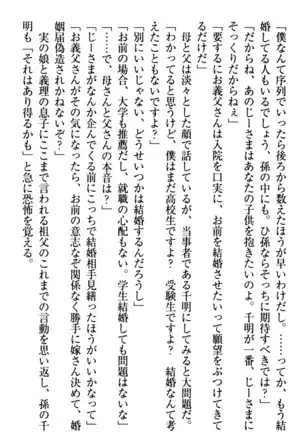 「僕なんて序列でいったら後ろから数えたほうが早いわけだし。……ってか、もう結
婚してる人もいるでしょう、孫の中にも。ひ孫ならそっちに期待すべきでは？」
「だからね、あのじーさまはあなたの子供を抱きたいのよ。千明が一番、じーさまに
そっくりだからねぇ」
「要するにお義父さんは入院を口実に、お前を結婚させたいって願望をぶつけてきて
るだけだ」
　母と父は淡々とした顔で話しているが、当事者である千明にしてみると大問題だ。
「わかってると思うけど、僕はまだ高校生ですよ？　受験生ですよ？　結婚なんて考
えたこともないですよ？」
「別にいいじゃない、どうせいつかは結婚するんだろうし」
「お前の場合、大学も推薦だし、就職の心配もない。学生結婚しても問題はないな」
「…………で、母さんと父さんの本音は？」
「じーさまがなんか企んでくる前にこっちで結婚相手見繕ったほうがいいかなって」
「お義父さんがその気になったら、お前の意志など関係なく勝手に嫁さん決めて、婚
姻届偽造されかねないぞ？」
　実の娘と義理の息子にここまで言われる祖父のこれまでの言動を思い返し、孫の千
明も「されるかも……」と急に恐怖を覚える。